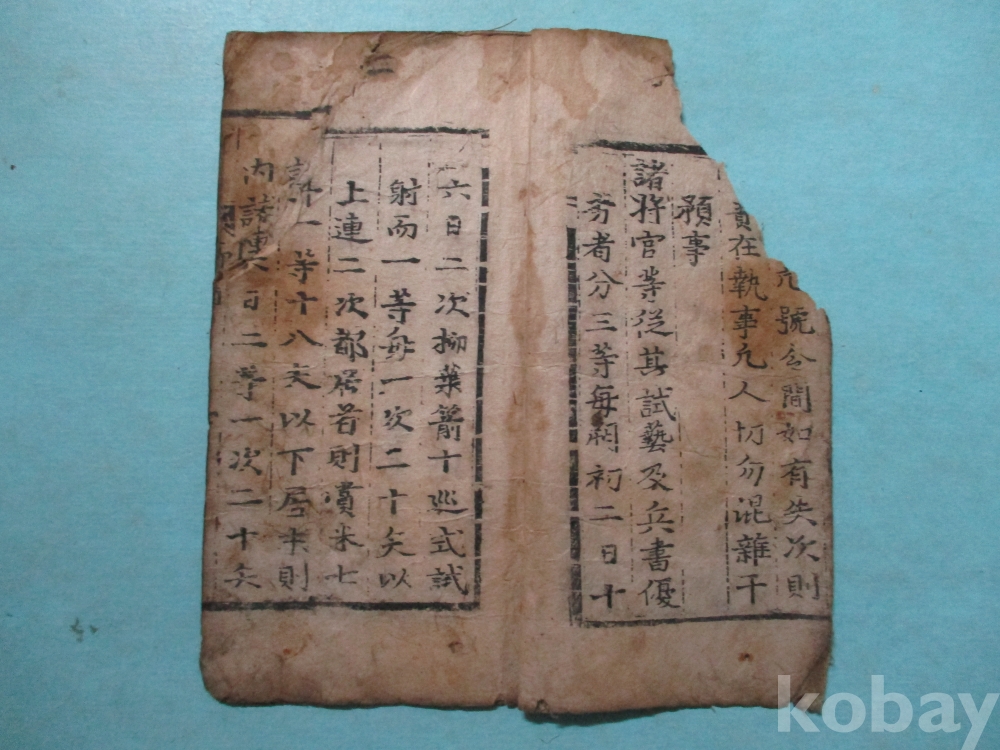 凢號令間如有失次則
責在執事凢人切勿混雜干
預事
諸將官等從其試藝及兵書優
劣者分三等每朔初二日十
六日二次柳葉箭十巡式試
射而一等每一次二十矢以
上連二次都居首則賞米七
斗一等十八矢以下居末則
內
百二等一次二十矢
kobay